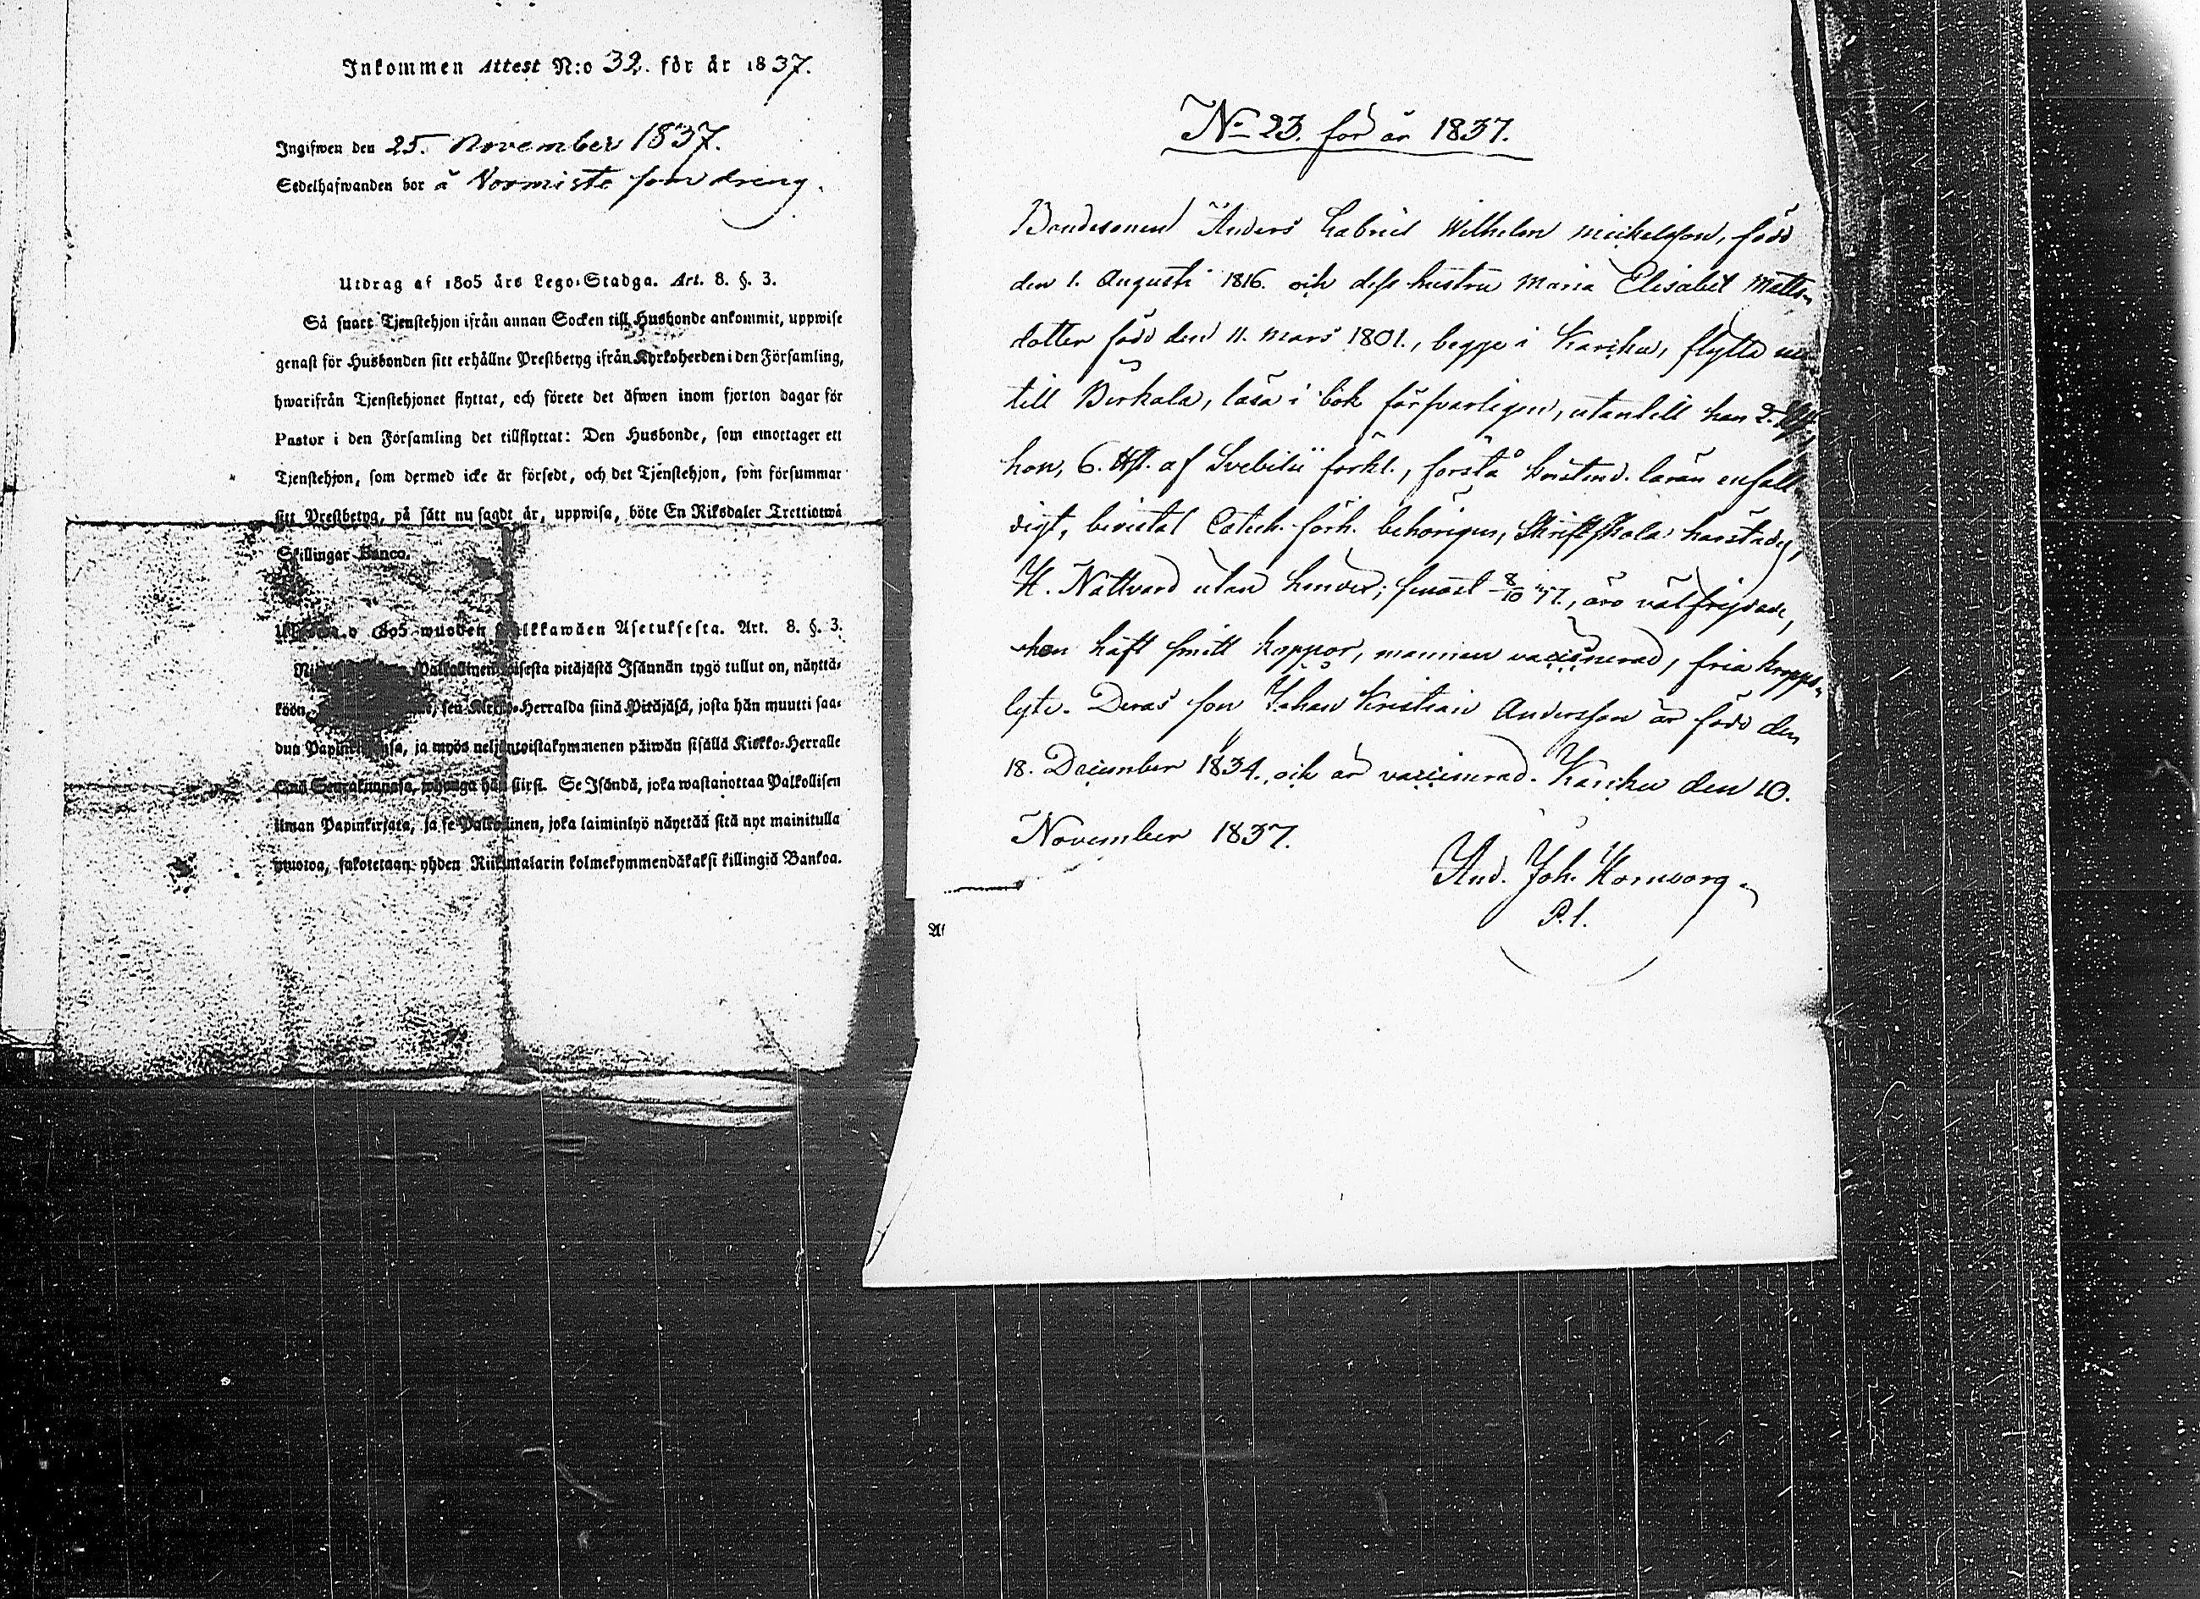 Inkommen Attest N:o 32. för år 1837.
Ingifwen den 25. November 1837.
Sedelhafwanden bor å Normista som dreng.
Utdrag af 1805 års Lego-Stadga. Art. 8. §. 3.
Så snart Tjenstehjon ifrån annan Socken till Husbonde ankommit, uppwise
genast för Husbonden sitt erhållne Prestbetyg ifrån Kyrkoherden i den Församling,
hwarifrån Tjenstehjonet flyttat, och förete det äfwen inom fjorton dagar för
Pastor i den Församling det tillflyttat: Den Husbonde, som emottager ett
Tjenstehjon, som dermed icke är försedt, och det Tjenstehjon, som försummar
sitt Prestbetyg, på sätt nu sagdt är, uppwisa, böte En Riksdaler Trettiotwå
Skillingar Banco.
1805 wuoden Palkkawäen Asetuksesta. Art. 8. §. 3.
Palkollinen toisesta pitäjästä Isännän tygö tullut on, näyttä-
köön sen Kirkko-Herralda siinä Pitäjäsä, josta hän muutti saa-
dun Papinkirjansa, ja myös neljäntoistakymmenen päiwän sisällä Kirkko-Herralle
siinä Seurakunnasa, siirsi. Se Isändä, joka wastanottaa Palkollisen
ilman Papinkirjata, ja se Palkollinen, joka laiminlyö näyttää sitä nyt mainitulla
muotoa, sakotetaan yhden Riikintalarin kolmekymmendäkaksi killingiä Bankoa.
No 23. for år 1837.
Bondesonen Anders Gabriel Wilhelm Mickelsson, född
den 1. Augusti 1816. och dess hustru Maria Elisabet Matts-
dotter född den 11. Mars 1801., begge i Karcku, flytta nu
till Birkala, läsa i bok försvarligen, utantill han 2.
hon, 6. Hft. af Svebilii förkl., förstå kristend. läran enfall
digt, bevistat Catech. förh. behörigen, Skriftskola
H. Nattvard utan hinder; senast 8/10 37., äro välfrejdade,
hon haft smitt koppor, mannen vaccinerad, fria kropps-
lyte. Deras son Johan Kristian Andersson är född den
18. December 1834., och är vaccinerad. Karcku den 10.
November 1837.
And. Joh. Hornborg.
P. l.